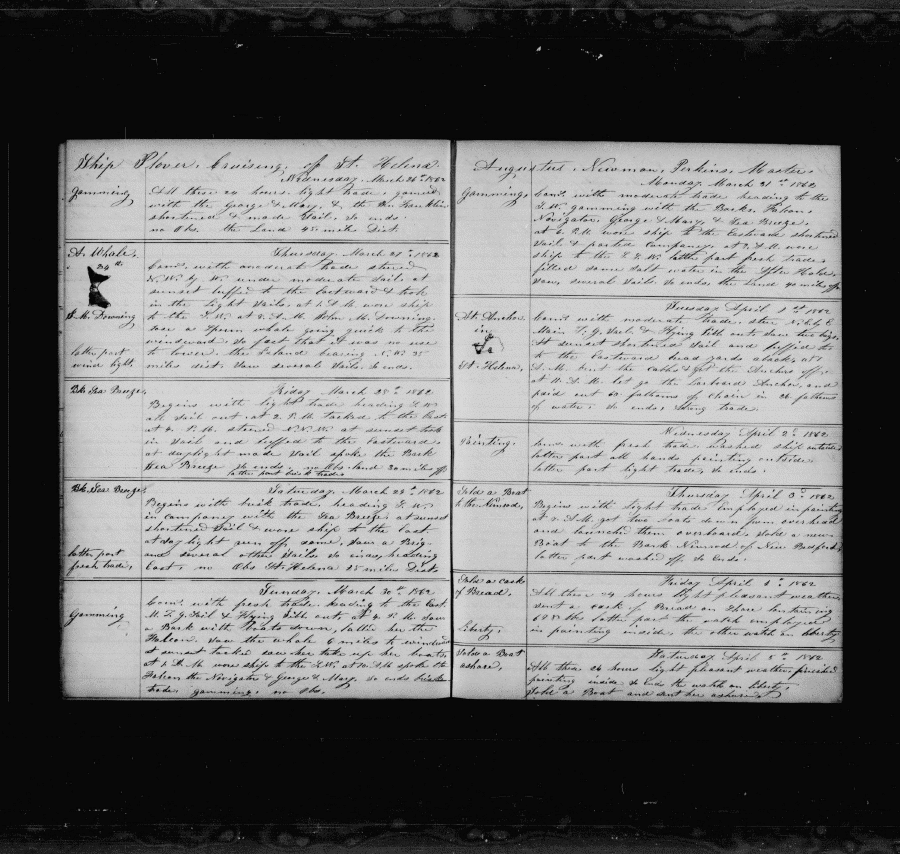 Ship Plover, Cruising, off St. Helena
Wednesday, March 26th 1862
Gamming
All these 24 hours light trade, gamed
with the George & Mary, & the Ben Franklin
shortened & made Sail. So ends.
no Obs. the Land 45 miles Dist.
S. Whale,
Thursday, March 27th 1862
Coms. with moderate trade steered
N.W. by W. under moderate Sail, at
sunset luffed to the Eastward & took
in the light Sails, at 4 A.M. wore ship
S.M. Downing
to the S.W. at 8 A.M. John M. Downing.
saw a Sperm whale going quick to the
windward. So fast that it was no use
latter part
to lower. the Island bearing N.W. 35
wind light.
miles dist. Saw several Sails. So ends.
Bk. Sea Breeze,
Friday, March 28th 1862
Begins with light trade heading S.W.
all Sail out at 2 P.M. tacked to the East
at 4 P.M. steered N.N.W. at sunset took
in Sail and luffed to the Eastward.
at daylight made Sail spoke the Bark
Sea Breeze So ends. no Obs. land 30 miles off
latter part brisk trade.
Bk. Sea Breeze,
Saturday, March 29th 1862
Begins with brisk trade, heading S.W.
in company with the Sea Breeze, at sunset
shortened Sail & wore ship to the East
at daylight run off some, Saw a Brig
latter part
and several other Sails So ends, heading
fresh trade,
East, no Obs St. Helena 25 miles Dist
Sunday, March 30th 1862
Gamming
Coms. with fresh trade, heading to the East.
M. T. G. Sail & Flying Jibb out, at 4 P.M. Saw
a Bark with boats down, called her the
Falcon. Saw the whale 6 miles to windward
at sunset tacked saw her take up her boats,
at 4 A.M. wore ship to the S.W. at 10 A.M. spoke the
Falcon the Navigator & George & Mary. So ends
trade, gamming, no Obs.
Augustus, Newman, Perkins, Master
Monday March 31st 1862
Gamming,
Coms. with moderate trade heading to the
S.W. gamming with the Barks, Falcon,
Navigator, George & Mary, & Sea Breeze,
at 6 P.M. wore ship to the Eastward shortened
Sail & parted Company, at 2 A.M. wore
ship to the S.W. latter part fresh trade,
filled some Salt water in the After Hole,
saw, several Sails. So ends, the land 40 miles off
Tuesday April 1st 1862
At Anchor
Coms. with moderate trade, steer
in
Main T. G. Sail, & Flying Jibb out, Saw two brigs,
At sunset shortened Sail and luffed
to the Eastward head yards aback, at
St. Helena,
A.M. bent the cable & got the Anchors off,
at 11 A.M. let go the larboard Anchor, and
paid out 60 fathoms of chain in 26 fathoms
of water, So ends, strong trade.
Wednesday April 2d 1862
Painting.
Coms with fresh trade, washed ship outside
latter part all hands painting outside.
latter part light trade, So ends.
Sold a Boat
Thursday April 3d 1862
to the Nimrod,
Begins with light trade Employed in painting
at 8 A.M. got two boats down from overhead
and launched them overboard, Sold a new
Boat to the Bark Nimrod of New Bedford,
latter part washed off. So Ends.
Sold a cask
Friday April 4th 1862
of Bread.
All these 24 hours light pleasant weather,
sent a cask of Bread on Shore containing
lbs latter part the watch employed
Liberty,
in painting inside, the other watch on liberty
Sold a Boat
Saturday April 5th 1862
ashore,
All these 24 hours light pleasant weather, finished
painting inside So Ends the watch on liberty,
Sold a Boat and sent her ashore